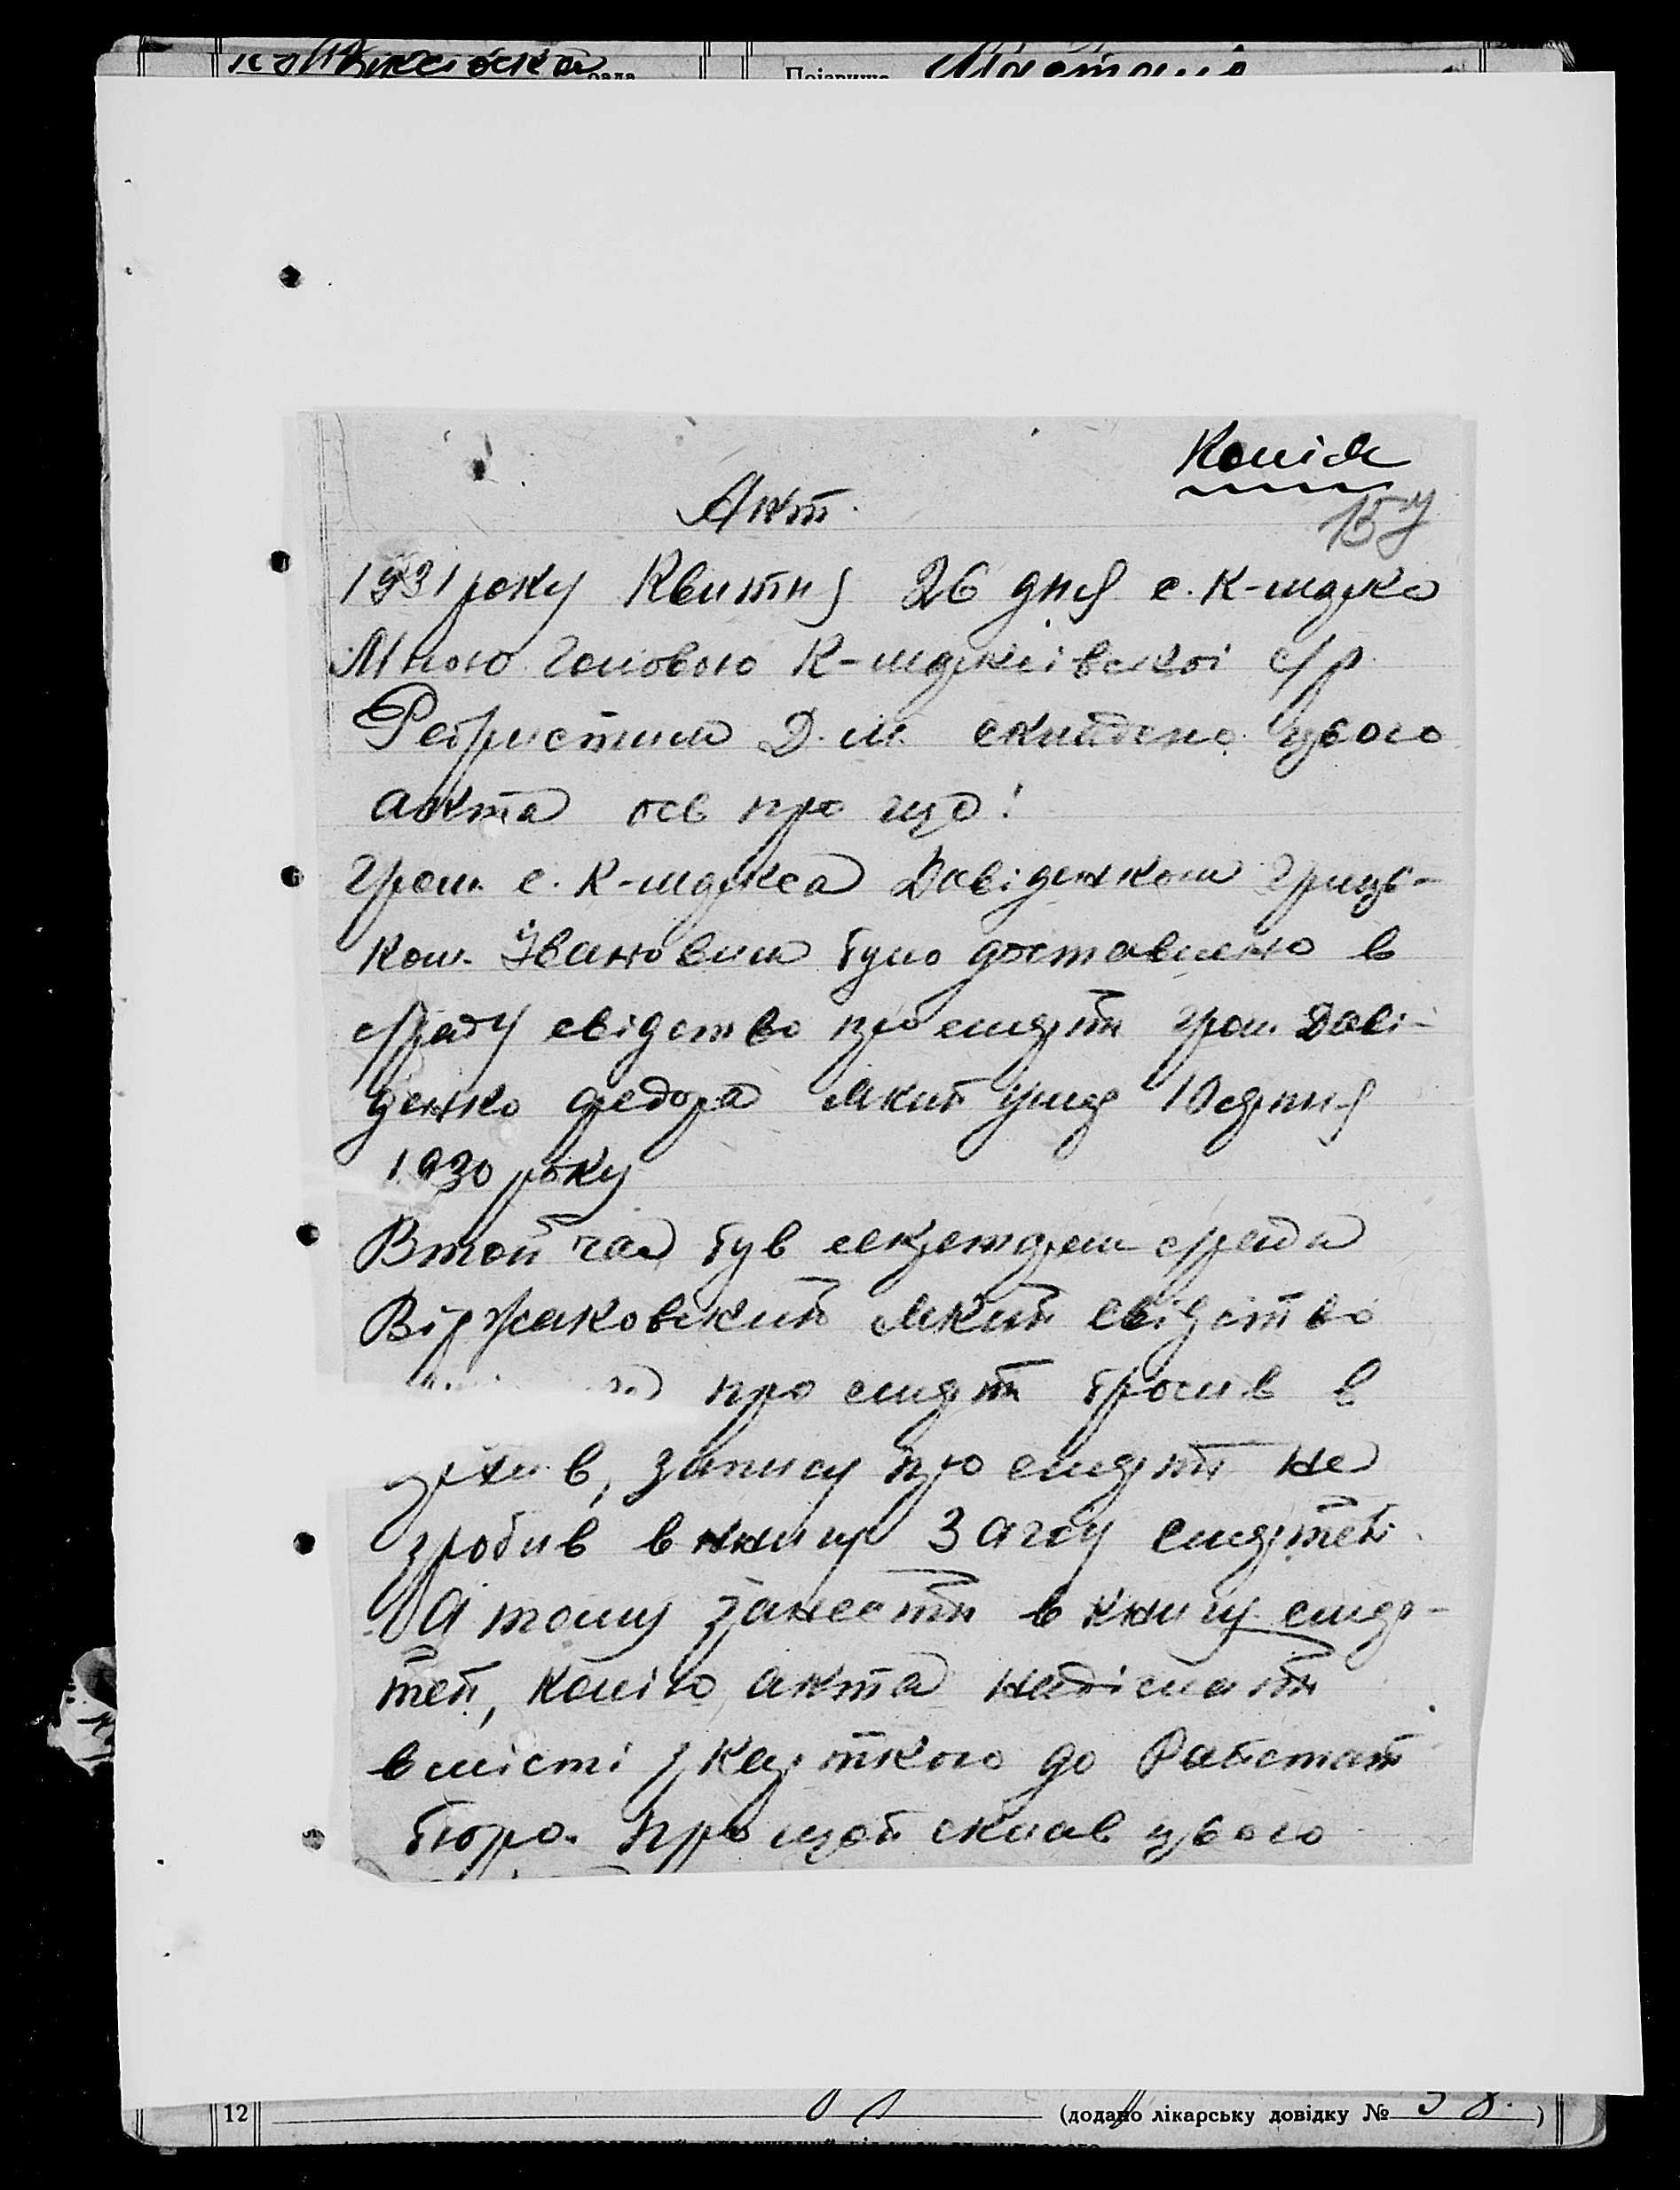 Копія
Акт.
157
1931 року Квитня 26 дня с. К-
Мною Головою К- с/р
Ребристим Д. М. складено цього
акта ось про що!
Гром. с. К- Давіденком Гриць-
ком. Івановим було доставлено в
с/раду свідотво про смерть гром. Даві-
денко Федора який умер 10 серпня
1930 року
В той час був секретарем с/ради
який свідотво
про смерть бросив в
в, запису про смерть не
зробив в книгу Загсу смертей
А тому занести в книгу смер-
тей, копію акта надіслати
вмісті з карткою до Райстат
бюро. Про щой склав цього
(додано лікарську довідку № 38.)
12